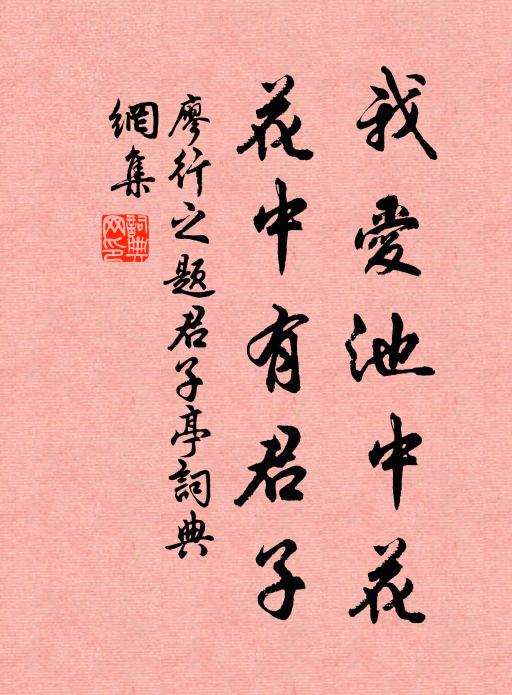 我愛池中花
花中有君子
廖行之題君子亭詞典
網集
詞典
网印